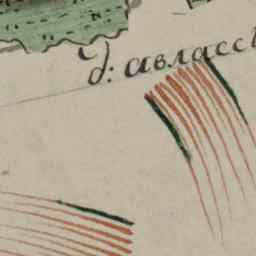 д: авласс